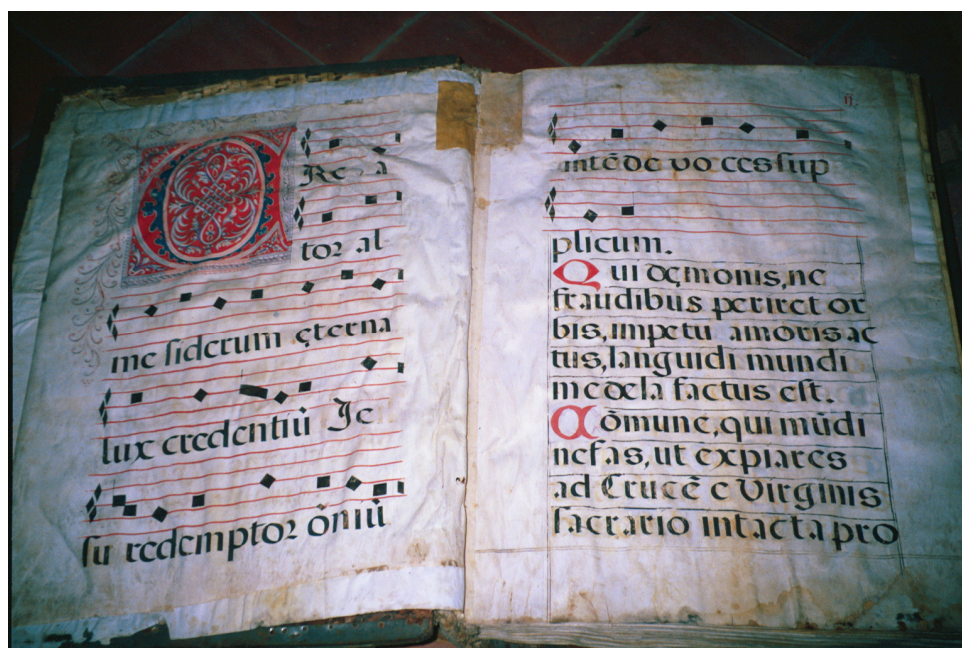 CRe a
tor al
me siderum ęterna
lux credentiū Je
su redemptor ōniū
ij
intēde vo ces sup
plicum.
Qui dęmonis, ne
fraudibus periret or
bis, impetu amoris ac
tus, languidi mundi
medela factus est.
Cōmune, qui mūdi
nefas, ut expiares
ad Crucē e Virginis
sacrario intacta pro